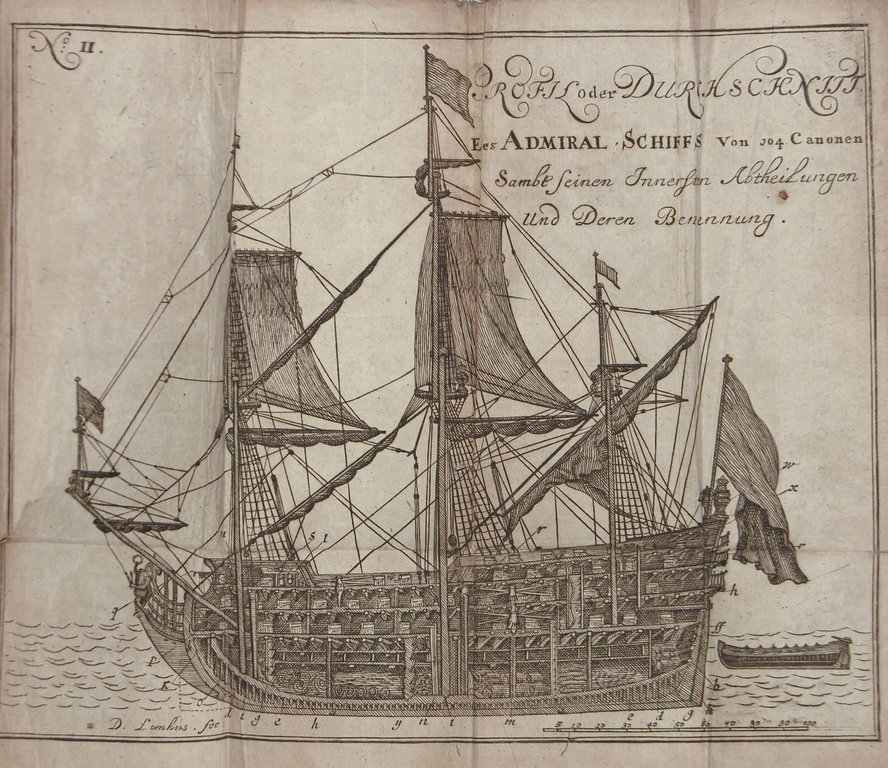 No. II.
PROFIL oder DURHSCHNITT
Ees ADMIRAL · SCHIFFS Von 104 Canonen
Sambt seinen Innersten Abtheilungen
Und Deren Benennung.
w
x
r
u
s t
r
h
q
ff
p
K
b
d i g e h y n i m e d g k
D. Lemkus. fec:
5 10 20 30 40 50 60 70 80 90 100